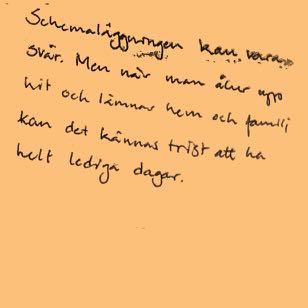 Schemaläggningen kan vara
svår. Men när man åker upp
hit och lämnar hem och familj
kan det kännas trist att ha
helt lediga dagar.